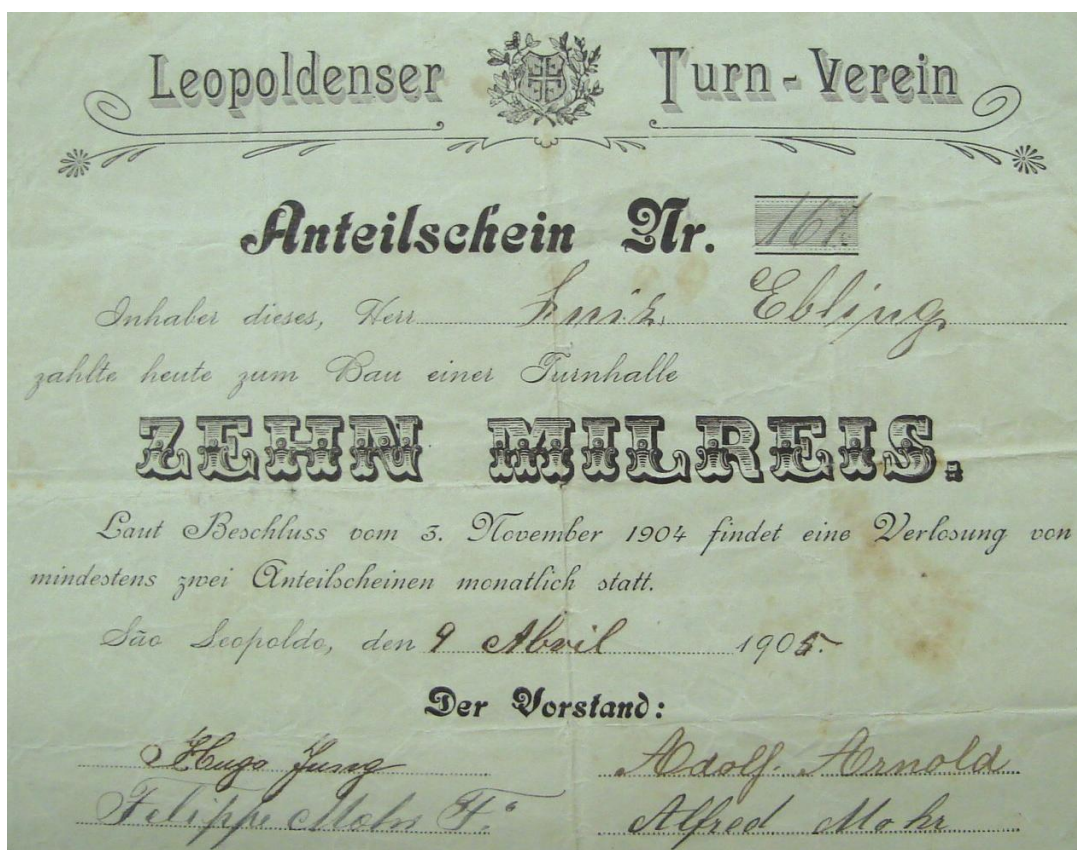 Leopoldenser Turn-Verein
Anteilschein Nr. 161
Inhaber dieses, Herr Luiz Ebling
zahlte heute zum Bau einer Turnhalle
ZEHN MILREIS.
Laut Beschluss vom 3. November 1904 findet eine Verlosung von
mindestens zwei Anteilscheinen monatlich statt.
São Leopoldo, den 9 Abril 1905.
Der Vorstand:
Hugo Jung Adolf Arnold
Filippe Mohr F.º Alfred Mohr